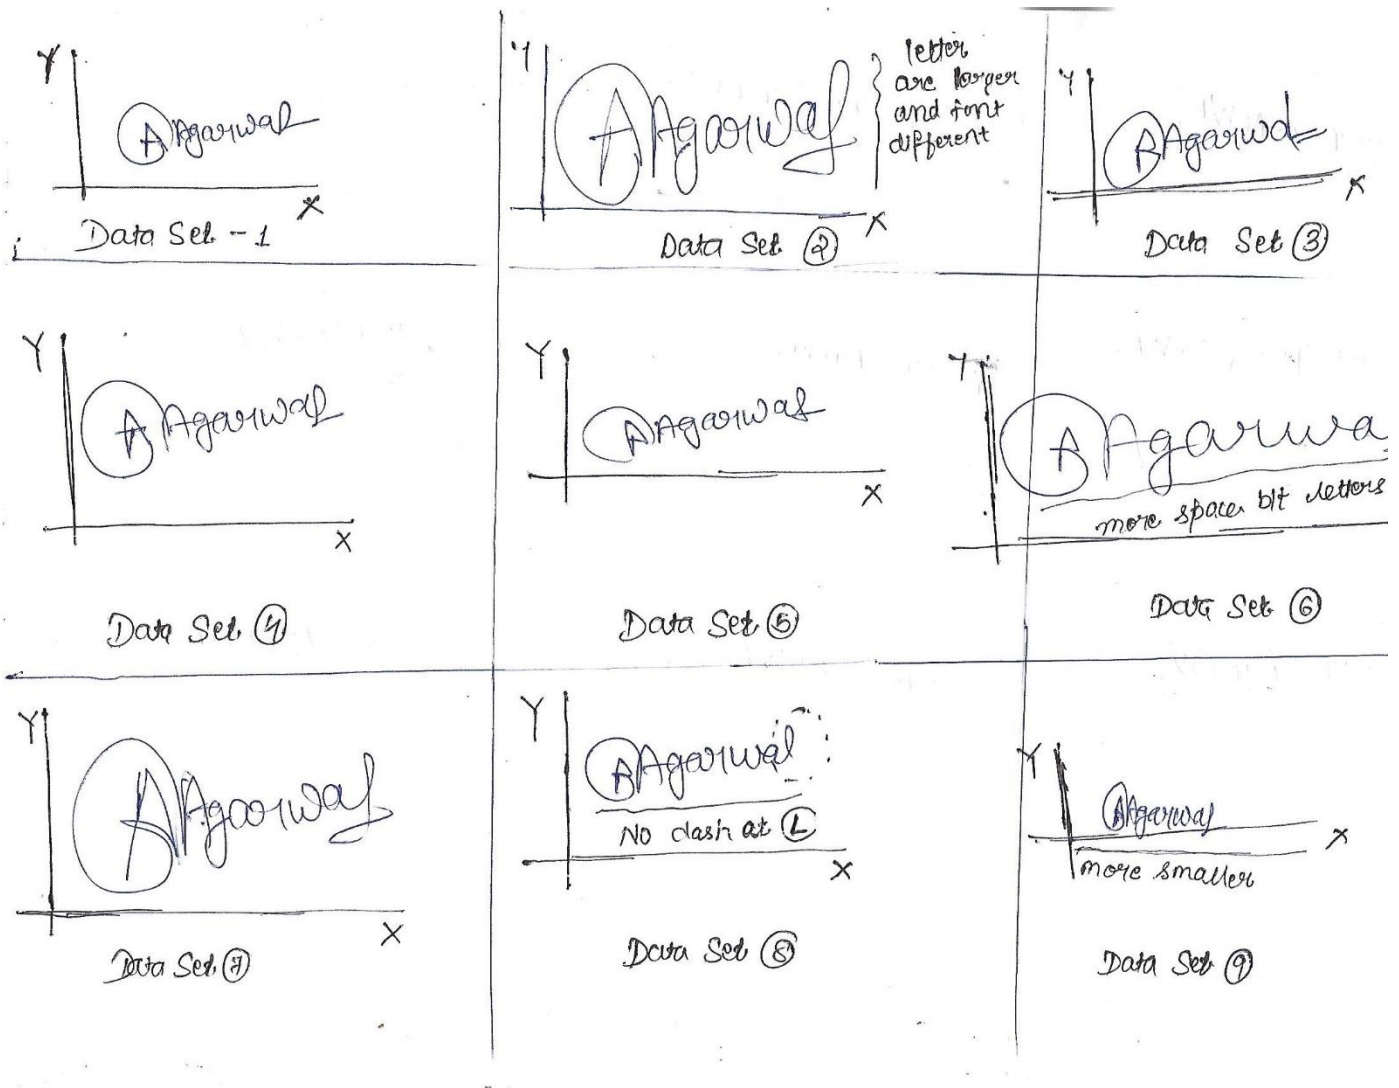 Y
A Agarwal
X
Data Set - 1
Y
A Agarwal
letter
are larger
and font
different
X
Data Set 2
Y
A Agarwal
X
Data Set 3
Y
A Agarwal
X
Data Set 4
Y
A Agarwal
X
Data Set 5
Y
A Agarwa
more space b/t letters
Data Set 6
Y
A Agarwal
X
Data Set 7
Y
A Agarwal
No dash at L
X
Data Set 8
Y
A Agarwal
X
more smaller
Data Set 9